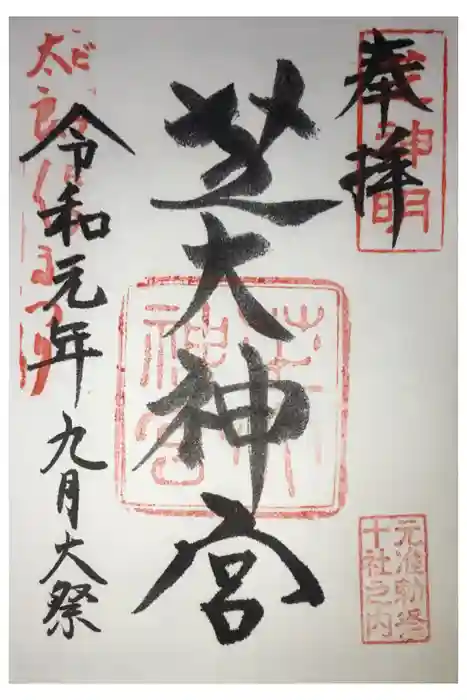 奉拝
芝神明
芝大神宮
芝大
神宮
令和元年九月大祭
元准勅祭
十社之内